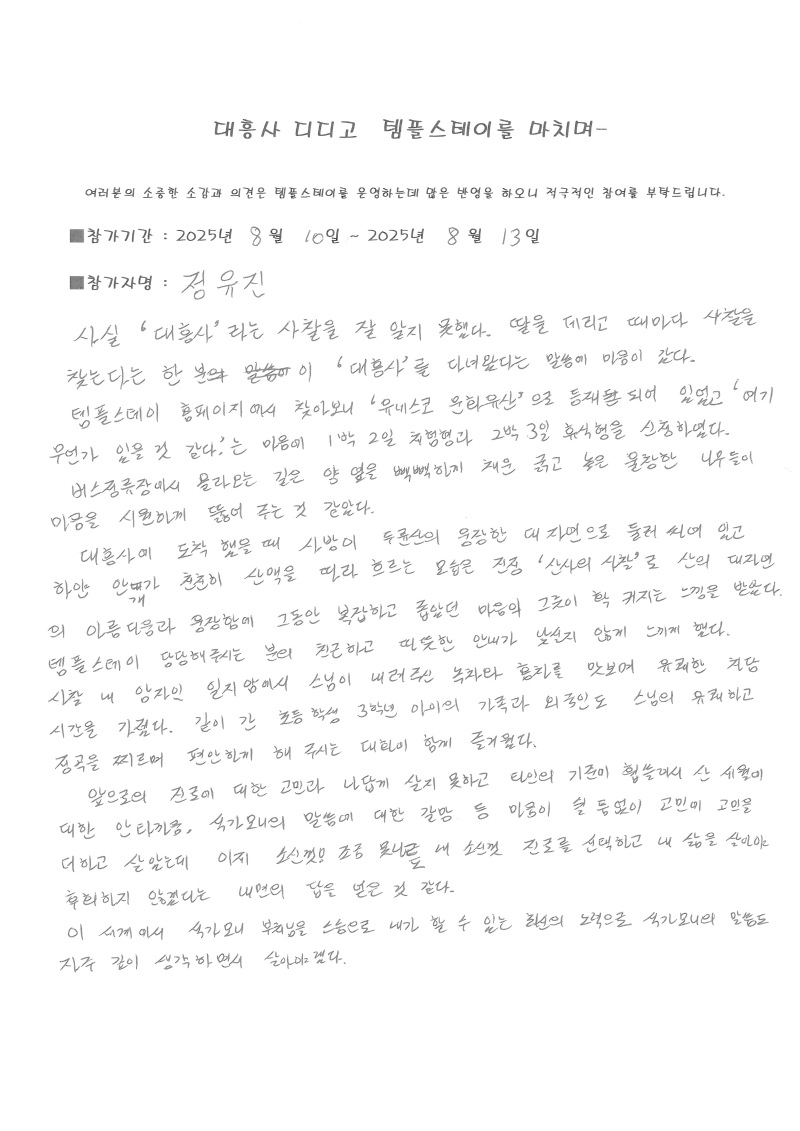 대흥사 디디고 템플스테이를 마치며-
여러분의 소중한 소감과 의견은 템플스테이를 운영하는데 많은 반영을 하오니 적극적인 참여를 부탁드립니다.
■참가기간 : 2025년 8월 10일 ~ 2025년 8월 13일
■참가자명 : 정유진
사실 '대흥사'라는 사찰을 잘 알지 못했다. 딸을 데리고 때마다 사찰을
찾는다는 한 분의 말씀에 이 '대흥사'를 다녀왔다는 말씀에 마음이 갔다.
템플스테이 홈페이지에서 찾아보니 '유네스코 문화유산'으로 등재 되어 있었고 '여기
무언가 있을 것 같다.'는 마음에 1박 2일 체험형과 2박 3일 휴식형을 신청하였다.
버스정류장에서 올라오는 길은 양 옆을 빽빽하게 채운 굵고 높은 울창한 나무들이
마음을 시원하게 뚫어 주는 것 같았다.
대흥사에 도착 했을 때 사방이 두륜산의 웅장한 대자연으로 둘러 싸여 있고
하얀 안개가 천천히 산맥을 따라 흐르는 모습은 진정 '산사의 사찰'로 산의 대자연
의 아름다움과 웅장함에 그동안 복잡하고 좁았던 마음의 그릇이 확 커지는 느낌을 받았다.
템플스테이 담당해주시는 분의 친근하고 따뜻한 안내가 낯설지 않게 느끼게 했다.
사찰 내 암자인 일지암에서 스님이 내려주신 녹차와 홍차를 맛보며 유쾌한 차담
시간을 가졌다. 같이 간 초등학생 3학년 아이의 가족과 외국인도 스님의 유쾌하고
정곡을 찌르며 편안하게 해 주시는 대화에 함께 즐거웠다.
앞으로의 진로에 대한 고민과 나답게 살지 못하고 타인의 기준에 휩쓸려서 산 세월에
대한 안타까움, 석가모니의 말씀에 대한 갈망 등 마음이 쉴 틈없이 고민에 고민을
더하고 살았는데 이제 소신껏 조금 못나도 내 소신껏 진로를 선택하고 내 삶을 살아야
후회하지 않겠다는 내면의 답을 얻은 것 같다.
이 세계에서 석가모니 부처님을 스승으로 내가 할 수 있는 최선의 노력으로 석가모니의 말씀도
자주 깊이 생각하면서 살아야겠다.